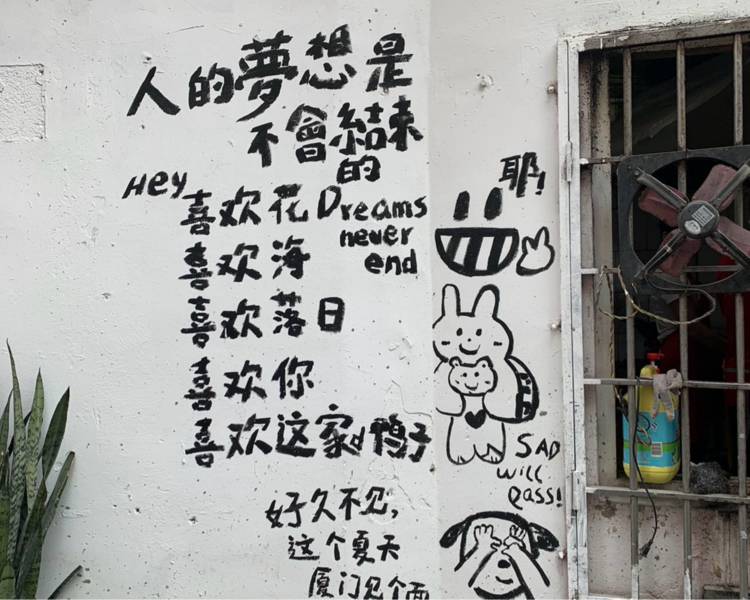 人的夢想是
不會結束
的
Hey
喜欢花
Dreams
never
end
喜欢海
喜欢落日
喜欢你
喜欢这家小鸭子
好久不见，
这个夏天
厦门见个面
耶！
SAD
will
pass!